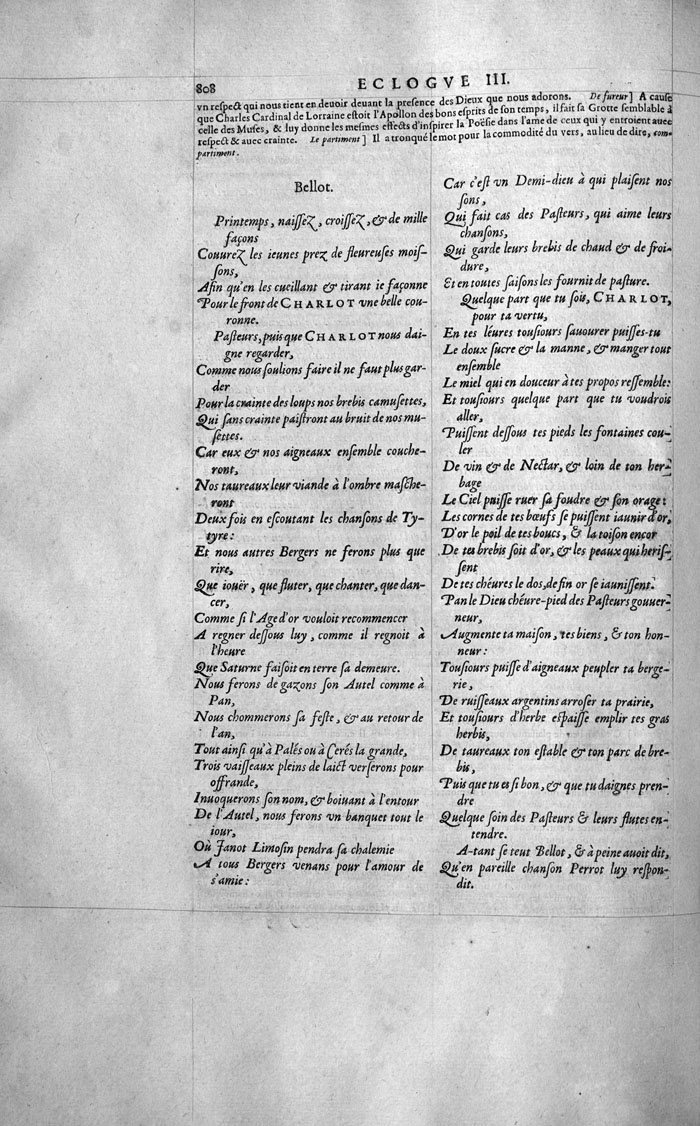 808
ECLOGVE III.
vn respect qui nous tient en deuoir deuant la presence des Dieux que nous adorons. De fureur] A cause
que Charles Cardinal de Lorraine estoit l'Apollon des bons esprits de son temps, il fait sa Grotte semblable à
celle des Muses, & luy donne les mesmes effects d'inspirer la Poësie dans l'ame de ceux qui y entroient auec
respect & auec crainte. Le partiment] Il a tronqué le mot pour la commodité du vers, au lieu de dire, com-
partiment.
Bellot.
Printemps, naissez, croissez, & de mille
façons
Couurez les ieunes prez de fleureuses mois-
sons,
Afin qu'en les cueillant & tirant ie façonne
Pour le front de CHARLOT vne belle cou-
ronne.
Pasteurs, puis que CHARLOT nous dai-
gne regarder,
Comme nous soulions faire il ne faut plus gar-
der
Pour la crainte des loups nos brebis camusettes,
Qui sans crainte paistront au bruit de nos mu-
settes.
Car eux & nos aigneaux ensemble couche-
ront,
Nos taureaux leur viande à l'ombre masche-
ront
Deux fois en escoutant les chansons de Ty-
tyre:
Et nous autres Bergers ne ferons plus que
rire,
Que iouër, que fluter, que chanter, que dan-
cer,
Comme si l'Age d'or vouloit recommencer
A regner dessous luy, comme il regnoit à
l'heure
Que Saturne faisoit en terre sa demeure.
Nous ferons de gazons son Autel comme à
Pan,
Nous chommerons sa feste, & au retour de
l'an,
Tout ainsi qu'à Palés ou à Cerés la grande,
Trois vaisseaux pleins de laict verserons pour
offrande,
Inuoquerons son nom, & boiuant à l'entour
De l'Autel, nous ferons vn banquet tout le
iour,
Où Janot Limosin pendra sa chalemie
A tous Bergers venans pour l'amour de
s'amie:
Car c'est vn Demi-dieu à qui plaisent nos
sons,
Qui fait cas des Pasteurs, qui aime leurs
chansons,
Qui garde leurs brebis de chaud & de froi-
dure,
Et en toutes saisons les fournit de pasture.
Quelque part que tu sois, CHARLOT,
pour ta vertu,
En tes léures tousiours sauourer puisses-tu
Le doux sucre & la manne, & manger tout
ensemble
Le miel qui en douceur à tes propos ressemble:
Et tousiours quelque part que tu voudrois
aller,
Puissent dessous tes pieds les fontaines cou-
ler
De vin & de Nectar, & loin de ton her-
bage
Le Ciel puisse ruer sa foudre & son orage:
Les cornes de tes bœufs se puissent iaunir d'or,
D'or le poil de tes boucs, & la toison encor
De tes brebis soit d'or, & les peaux qui heris-
sent
De tes chéures le dos, de fin or se iaunissent.
Pan le Dieu chéure-pied des Pasteurs gouuer-
neur,
Augmente ta maison, tes biens, & ton hon-
neur:
Tousiours puisse d'aigneaux peupler ta berge-
rie,
De ruisseaux argentins arroser ta prairie,
Et tousiours d'herbe espaisse emplir tes gras
herbis,
De taureaux ton estable & ton parc de bre-
bis,
Puis que tu es si bon, & que tu daignes pren-
dre
Quelque soin des Pasteurs & leurs flutes en-
tendre.
A-tant se teut Bellot, & à peine auoit dit,
Qu'en pareille chanson Perrot luy respon-
dit.